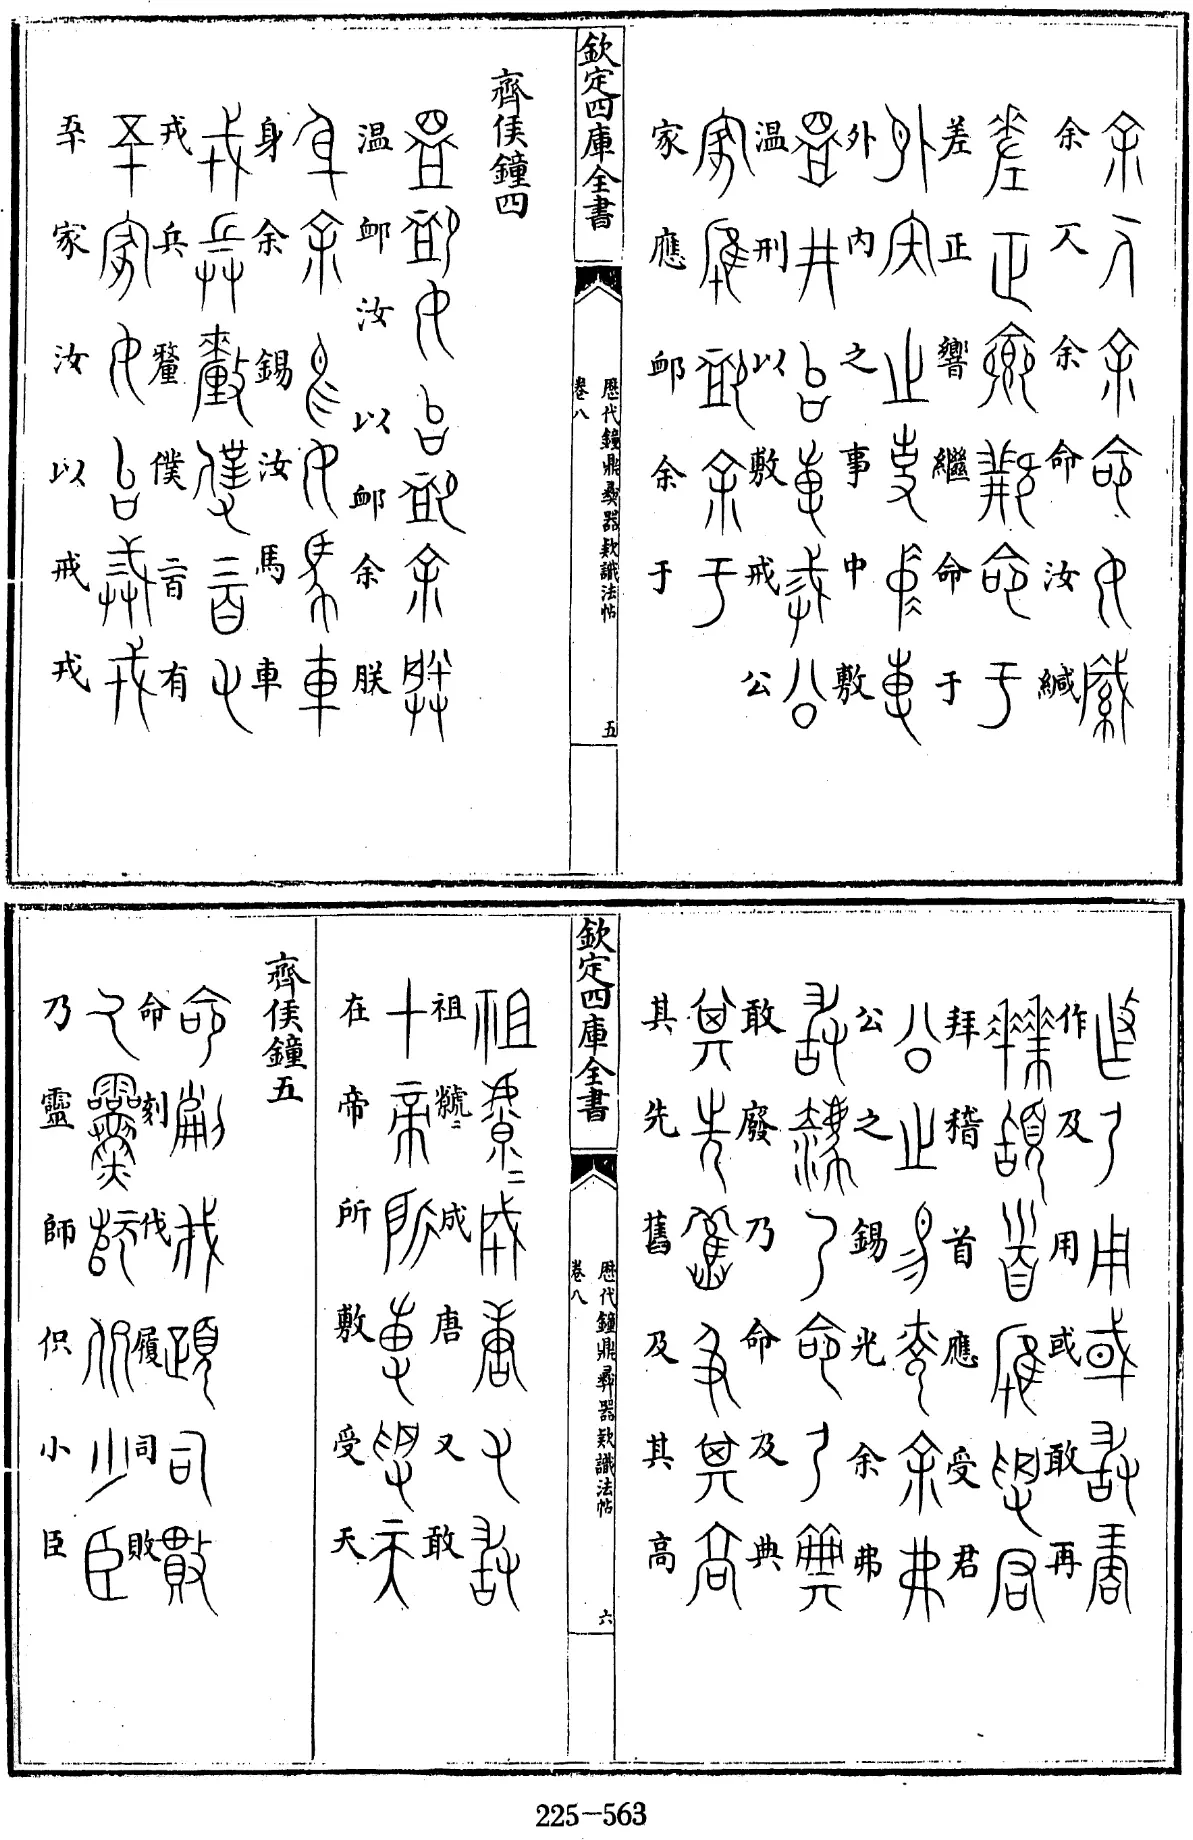 余入余命汝緘
差正響繼命于
外内之事中敷
温刑以敷戒公
家應卹余于
欽定四庫全書
卷八
歷代鐘鼎彝器款識法帖
五
齊侯鐘四
温卹汝以卹余朕
身余錫汝馬車
戎兵釐僕二百有
家汝以戒戎
作及用或敢再
拜稽首應受君
公之錫光余弗
敢廢乃命及典
其先舊及其高
欽定四庫全書
卷八
歷代鐘鼎彝器款識法帖
六
祖虩二成唐又敢
在帝所敷受天
齊侯鐘五
命刻伐履司敗
乃靈師伿小臣
225-563